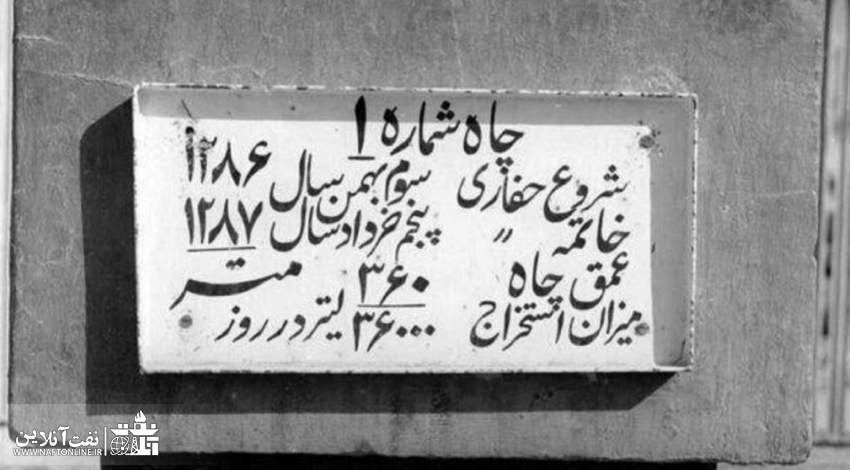 چاه شماره ۱
شروع حفاری سوم بهمن سال ۱۲۸۶
خاتمه " پنجم خرداد سال ۱۲۸۷
عمق چاه ۳۶۰ متر
میزان استخراج ۳۶۰۰۰ لیتر در روز
نفت آنلاین
WWW.NAFTONLINE.IR